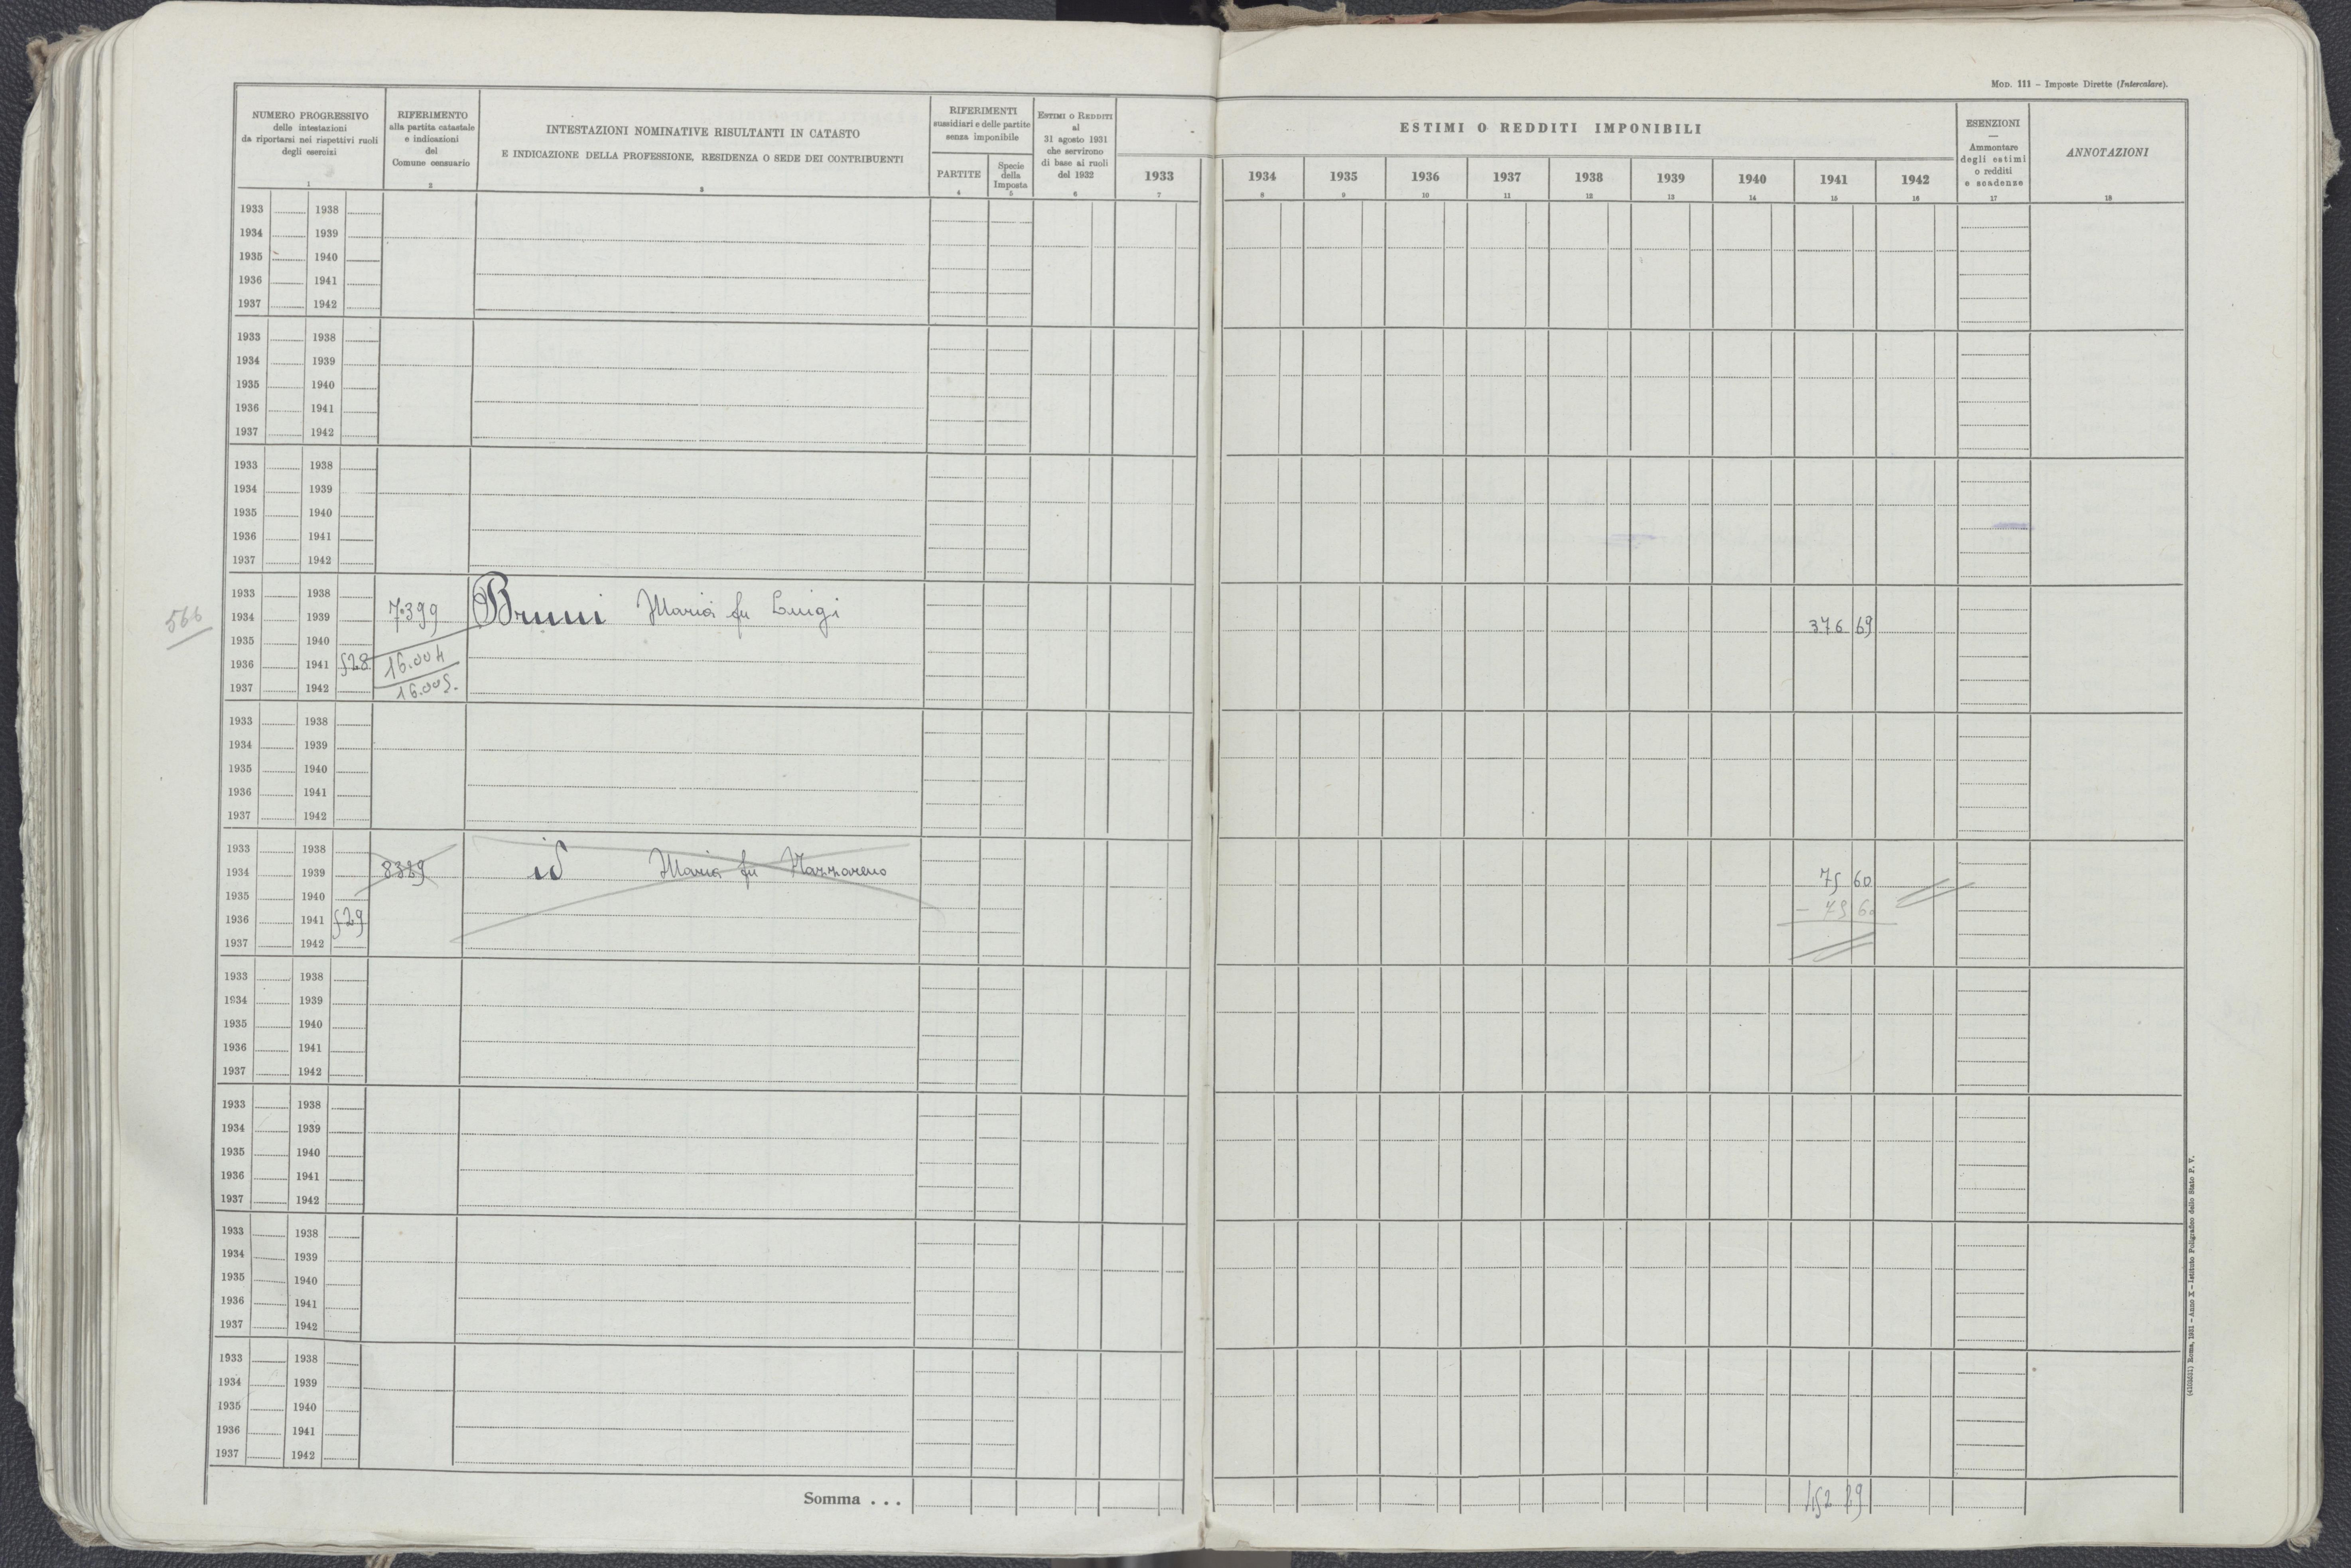 Mod. 111 – Imposte Dirette (Intercalare).
NUMERO PROGRESSIVO
delle intestazioni
da riportarsi nei rispettivi ruoli
degli esercizi
1
RIFERIMENTO
alla partita catastale
e indicazioni
del
Comune censuario
2
INTESTAZIONI NOMINATIVE RISULTANTI IN CATASTO
E INDICAZIONE DELLA PROFESSIONE, RESIDENZA O SEDE DEI CONTRIBUENTI
3
RIFERIMENTI
sussidiari e delle partite
senza imponibile
PARTITE
4
Specie
della
Imposta
5
Estimi o Redditi
al
31 agosto 1931
che servirono
di base ai ruoli
del 1932
6
ESTIMI O REDDITI IMPONIBILI
1933 1934 1935 1936 1937 1938 1939 1940 1941 1942
7 8 9 10 11 12 13 14 15 16
ESENZIONI
—
Ammontare
degli estimi
o redditi
e scadenze
17
ANNOTAZIONI
18
1933 1938
1934 1939
1935 1940
1936 1941
1937 1942
1933 1938
1934 1939
1935 1940
1936 1941
1937 1942
1933 1938
1934 1939
1935 1940
1936 1941
1937 1942
1933 1938
566 1934 1939 7399 Bruni Maria fu Luigi 376 69
1935 1940
1936 1941 528 16.004
1937 1942 16.005.
1933 1938
1934 1939
1935 1940
1936 1941
1937 1942
1933 1938
1934 1939 8389 id Maria fu Nazzareno 75 60
1935 1940
1936 1941 529 – 75 60
1937 1942
1933 1938
1934 1939
1935 1940
1936 1941
1937 1942
1933 1938
1934 1939
1935 1940
1936 1941
1937 1942
1933 1938
1934 1939
1935 1940
1936 1941
1937 1942
1933 1938
1934 1939
1935 1940
1936 1941
1937 1942
Somma . . . 452 29
(4103531) Roma, 1931 – Anno X – Istituto Poligrafico dello Stato P. V.